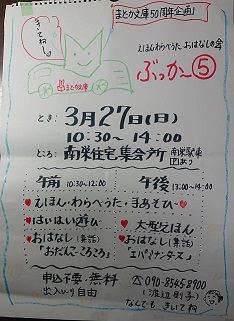 きてね〜
まどか文庫50周年企画
まどか文庫
えほん・わらべうた・おはなしの会
ぶっか〜⑤
とき: 3月27日(日)
10:30〜14:00
ところ: 南栄住宅集会所
南栄駅東
Pあり
午前 10:30〜12:00
午後 13:00〜14:00
♥えほん・わらべうた・手あそび〜♥
♥はいはい遊び
♥大型えほん
♥おはなし(素話)
「おだんごころころ」
♥おはなし(素話)
「エパミナンダス」
申込不要・無料
出入り自由
090-8545-8900
なんでもきいてね